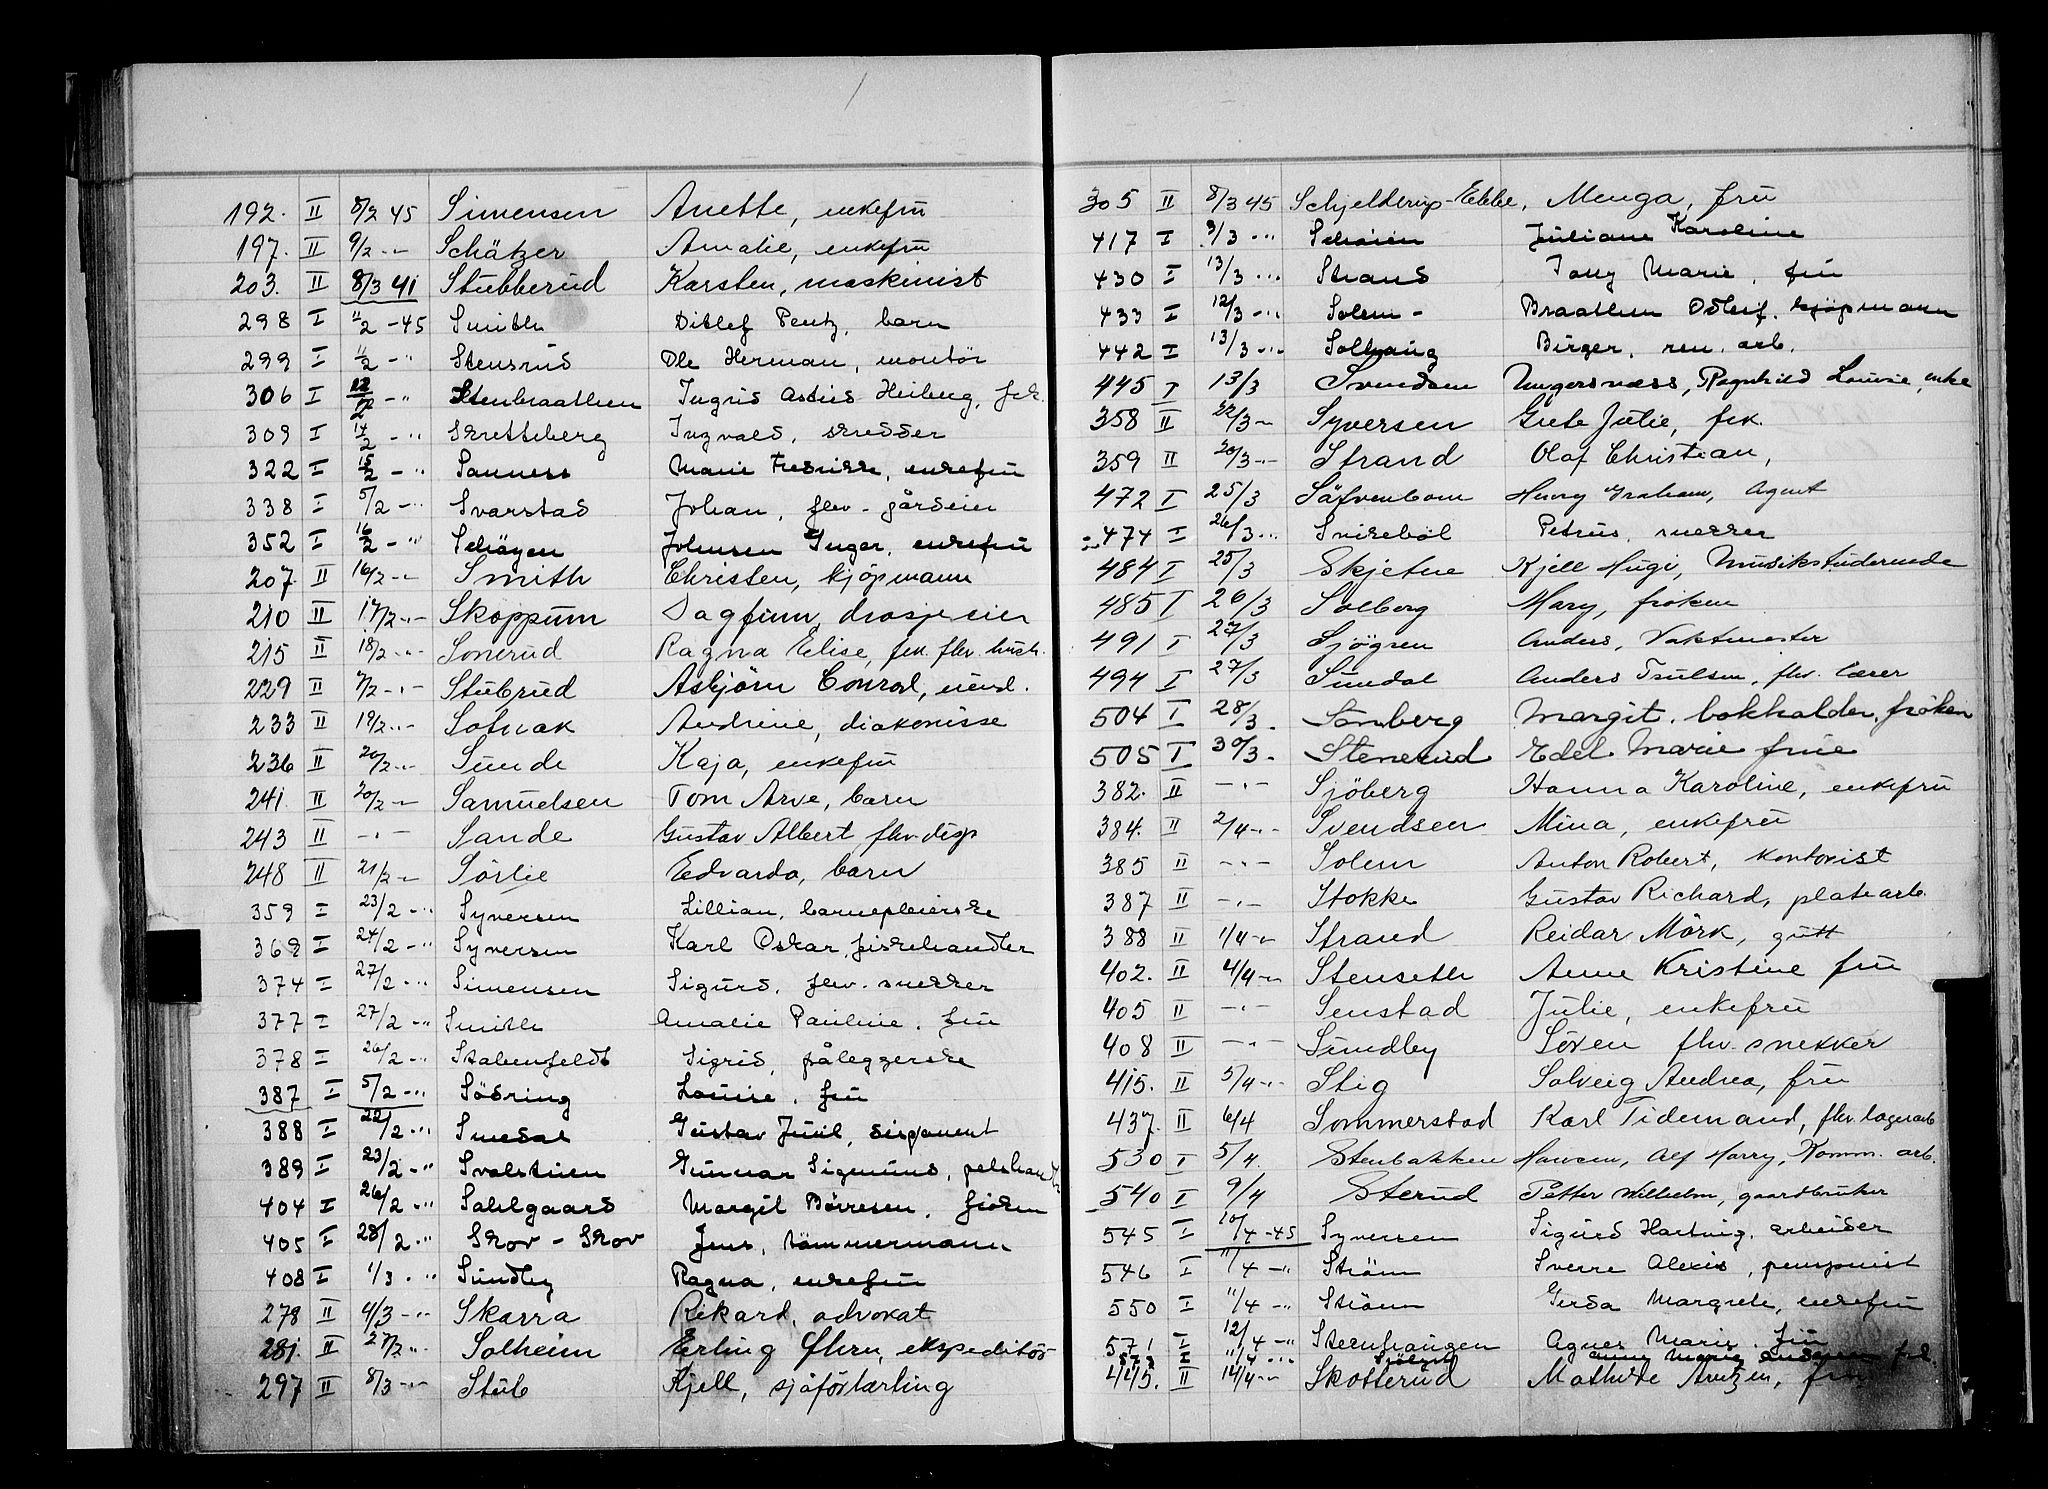 192. II 8/2 45 Simensen Anette, enkefru
197. II 9/2 -"- Schätzer Amalie, enkefru
203. II 8/3 41 Stubberud Karsten, maskinist
298 I 11/2 -45 Smith Ditlef Pentz, barn
299 I 11/2 -" Stensrud Ole Herman, montör
306 I 12/2 -" Stenbraathen Ingrid Astrid Heiberg, frk.
309 I 14/2 -" Skretteberg Ingvald, skredder
322 I 15/2 -" Sanness Marie Fredrikke, enkefru
338 I 5/2 -" Svarstad Johan, fhv. gårdeier
352 I 16/2 -" Schöyen Johnsen Inger, enkefru
207. II 16/2 -"- Smith Christen, kjöpmann
210 II 17/2 -"- Skoppum Dagfinn, drosjeeier
215 II 18/2 -"- Sonerud Ragna Elise, frk. fhv. hush.
229 II 7/2 -"- Stubrud Asbjörn Conrad,
233 II 19/2 -"- Sotnak Andrine, diakonisse
236 II 20/2 -"- Sunde Kaja, enkefru
241. II 20/2 -"- Samuelsen Tom Arve, barn
243 II -"- Sande Gustav Albert fhv. disp
248 II 21/2 -"- Sörlie Edvarda, barn
359 I 23/2 -" Syversen Lillian, barnepleierske
369 I 24/2 -" Syversen Karl Oskar, fiskehandler
374 I 27/2 -" Simensen Sigurd, fhv. snekker
377 I 27/2 -" Smith Amalie Pauline, fru
378 I 26/2 -" Stabenfeldt Sigrid, påleggerske
387 I 5/2 -" Södring Louise, fru
388 I 22/2 -" Smedal Gustav Juul, disponent
389 I 23/2 -" Svalstuen Gunnar Sigmund, pelshandl.
404 I 26/2 -" Sahlgaard Margit Börresen, fröken
405 I 28/2 -" Skov - Skov Jens, tömmermann
408 I 1/3 -" Sundby Ragna, enkefru
278 II 4/3 -" Skarra Rikard, advokat
281. II 27/2 -" Solheim Erling Thrn, ekspeditör
297 II 8/3 -"- Stub Kjell, sjåförlærling
305 II 8/3 45 Schjelderup-Ebbe, Menga, fru
417 I 9/3 -" Schöien Juliane Karoline
430 I 13/3 -" Strand Tony Marie, fru
433 I 12/3 -" Solem - Braathen Odleif, kjöpmann
442 I 13/3 -" Solhaug Birger, ren. arb.
445 I 13/3 Svendsen Ungersness, Ragnhild Louise, enke
358 II 22/3 -"- Syversen Grete Julie, frk.
359 II 20/3 -"- Strand Olaf Christian,
472 I 25/3 Säfvenbom Henry Graham, Agent
474 I 26/3 -" Svireböl Petrus, snekker
484 I 25/3 Skjetne Kjell Hugi, Musikstuderende
485 I 26/3 Solberg Mary, fröken
491 I 27/3 Sjögren Anders, Vaktmester
494 I 27/3 Sundal Anders Trulsen, fhv. lærer
504 I 28/3. Sönberg Margit, bokholder, fröken
505 I 30/3. Stenerud Edel Marie frue
382. II -"- Sjöberg Hanna Karoline, enkefru
384. II 2/4 -"- Svendsen Mina, enkefru
385 II -"- Solem Anton Robert, kontorist
387 II -"- Stokke Gustav Richard, platearb.
388 II 1/4 -"- Strand Reidar Mörk, gutt
402. II 4/4 -"- Stenseth Anne Kristine fru
405 II -"- Senstad Julie, enkefru
408 II -"- Sundby Sören fhv. snekker
415. II 5/4 -"- Stig Solveig Andrea, fru
437. II 6/4 Sommerstad Karl Tidemand, fhv. lagerarb
530 I 5/4. Stenbakken Hansen, Alf Harry, Komm. arb.
540 I 9/4 Sterud Petter Wilhelm, gaardbruker
545 I 10/4 -45 Syversen Sigurd Hartvig, arbeider
546 I 11/4 -" Ström Sverre Alexis, pensjonist
550 I 11/4 -" Ström Gerda Margrete, enkefru
571 I 12/4 -" Sternhaugen Agnes Marie, fru
573 I 11/4 -" Anne Marie Andersen frk.
445. II 14/4 -"- Skotterud Mathilde Arntzen, fru